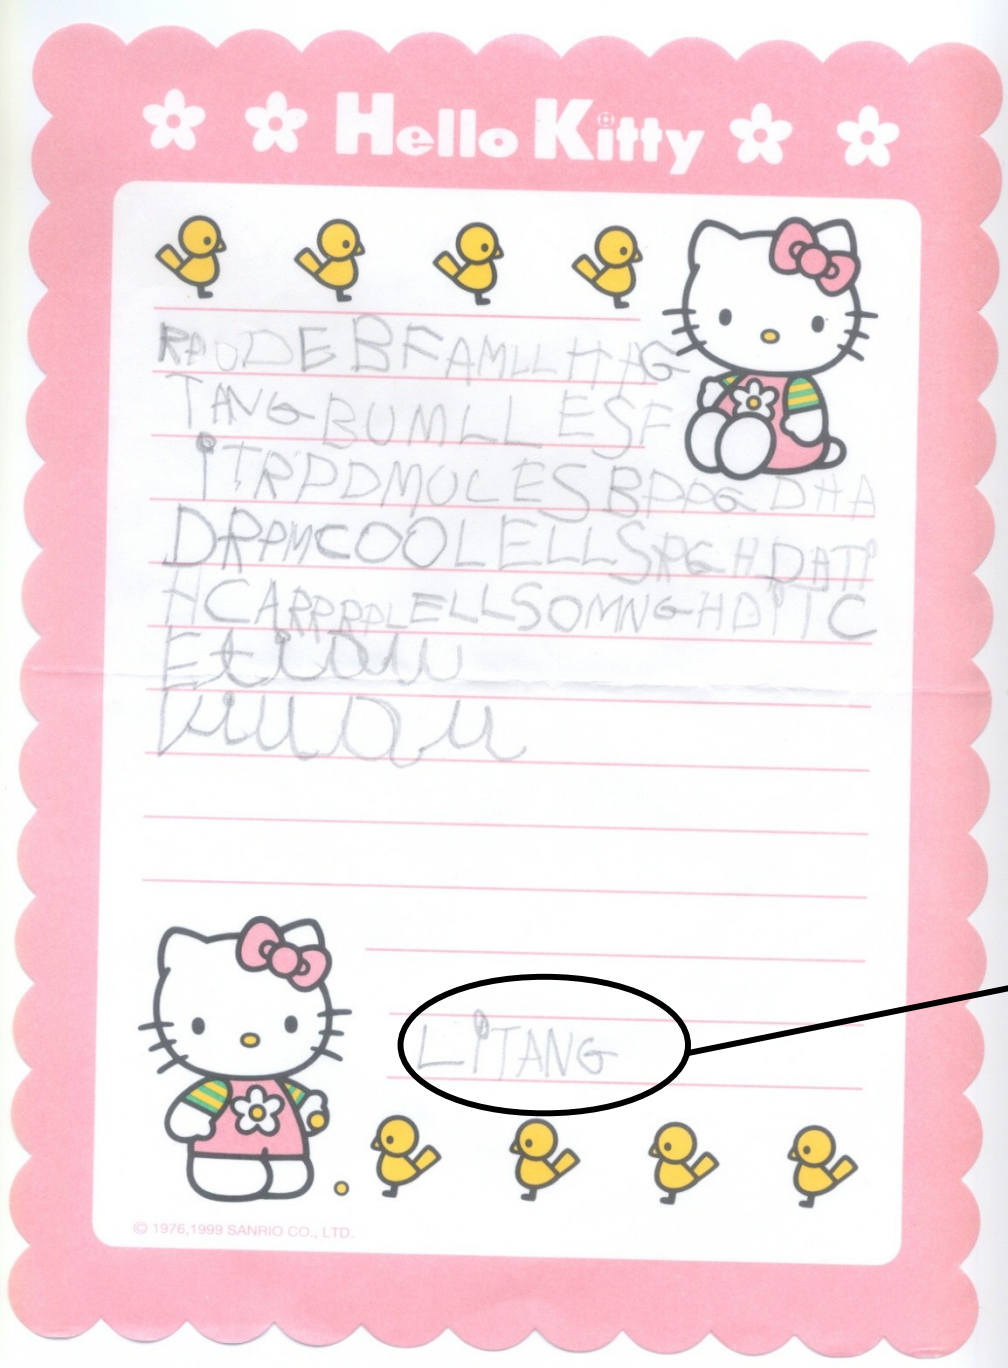 Hello Kitty
RADODEBFAMLLHAG
TANGBUMLLESF
iTRPDMOLESBPPGDHA
DRPMCOOLELLSPGHDATi
HCARRPRPLELLSOMNGHDiTC
LiTANG
© 1976,1999 SANRIO CO., LTD.